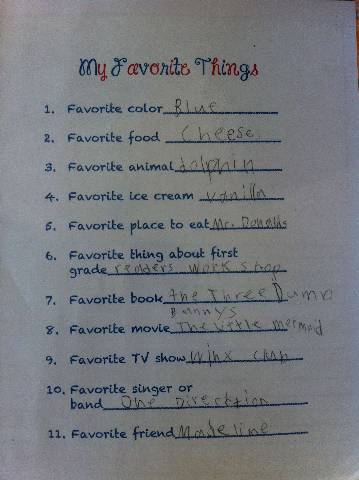 My Favorite Things
1. Favorite color Blue
2. Favorite food Cheese
3. Favorite animal dolphin
4. Favorite ice cream vanilla
5. Favorite place to eat Mc. Donalds
6. Favorite thing about first
grade readers work shop
7. Favorite book the Three Dumb
Bunnys
8. Favorite movie The little mermaid
9. Favorite TV show Winx
10. Favorite singer or
band One Direction
11. Favorite friend Madeline